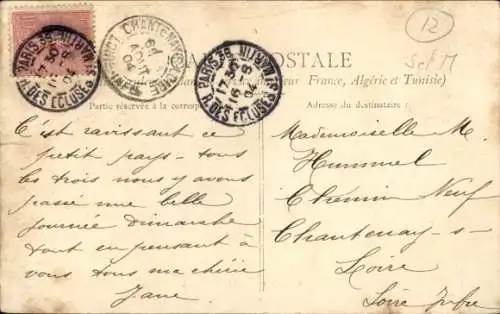 12
CARTE POSTALE
Sct M
France, Algérie et Tunisie)
Partie réservée à la corresp
Adresse du destinataire
PARIS 38
17 30
16 -8
04
R. DES ECLUSES ST MARTIN
CHANTENAY
AOUT
04
PARIS 38
17 30
16 -8
04
R. DES ECLUSES ST MARTIN
C'est ravissant ce
petit pays - tous
les trois nous y avons
passé une belle
journée dimanche
tout en pensant à
vous tous ma chérie
Jane
Mademoiselle M.
Hummel
Chemin Neuf
Chantenay-s-
Loire
Loire Infre